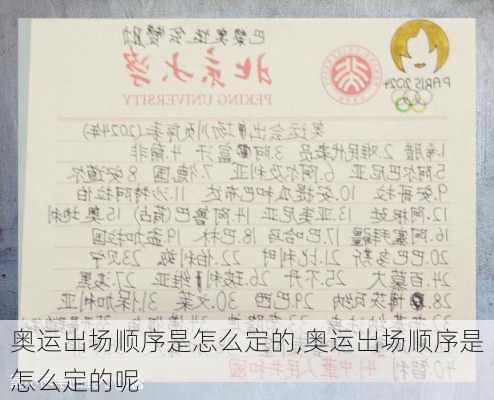 PARIS 2024
北京大学
PEKING UNIVERSITY
奥运会出场顺序(2024年)
1.希腊 2.难民代表团 3.阿富汗 4.南非
5.阿尔巴尼亚 6.阿尔及利亚 7.德国 8.安道尔
9.安哥拉 10.安提瓜和巴布达 11.沙特阿拉伯
12.阿根廷 13.亚美尼亚 14.阿鲁巴 15.奥地利
16.阿塞拜疆 17.巴哈马 18.巴林 19.孟加拉国
20.巴巴多斯 21.比利时 22.伯利兹 23.贝宁
24.百慕大 25.不丹 26.玻利维亚 27.波黑
28.博茨瓦纳 29.巴西 30.文莱 31.保加利亚
40智利 41中华人民共和国
奥运出场顺序是怎么定的,奥运出场顺序是
怎么定的呢